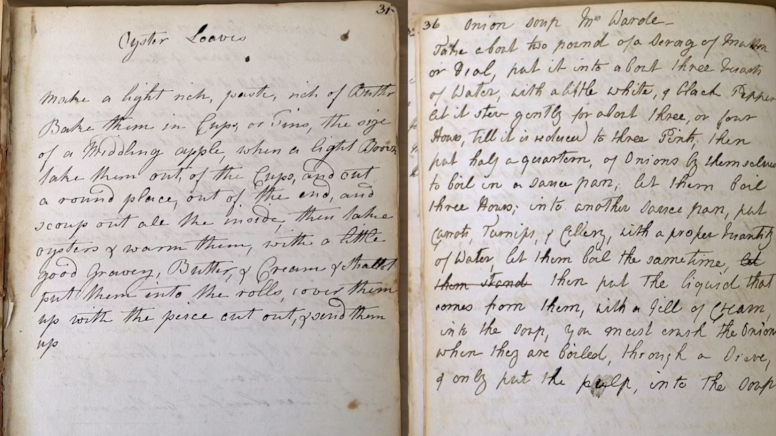 31
Oyster Loaves
make a light rich, paste, rich of Butter
Bake them in Cups, or Tins, the size
of a Middling apple, when a light Brown
take them out of the Cups, and cut
a round place, out of the end, and
scoup out all the inside, then take
oysters & warm them, with a little
good gravey, Butter, & Cream & shallot
put them into the rolls, cover them
up with the peice cut out, & send them
up
36 Onion Soup Mrs Warde
Take about two pound of a Scrag of Mutton
or Veal, put it into about three Quarts
of Water, with a little white, & black Pepper
let it stew gently for about three, or four
Hours, till it is reduced to three Pints, then
put half a quartern, of Onions by themselves
to boil in a sauce pan, let them boil
three Hours; into another sauce pan, put
Carrots, Turnips, & Cellery, with a proper Quantity
of Water let them boil the same time, let
them stand then put the liquid that
comes from them, with a Gill of Cream,
into the Soup, you must crush the Onions
when they are boiled, through a Sieve,
& only put the pulp, into the Soup